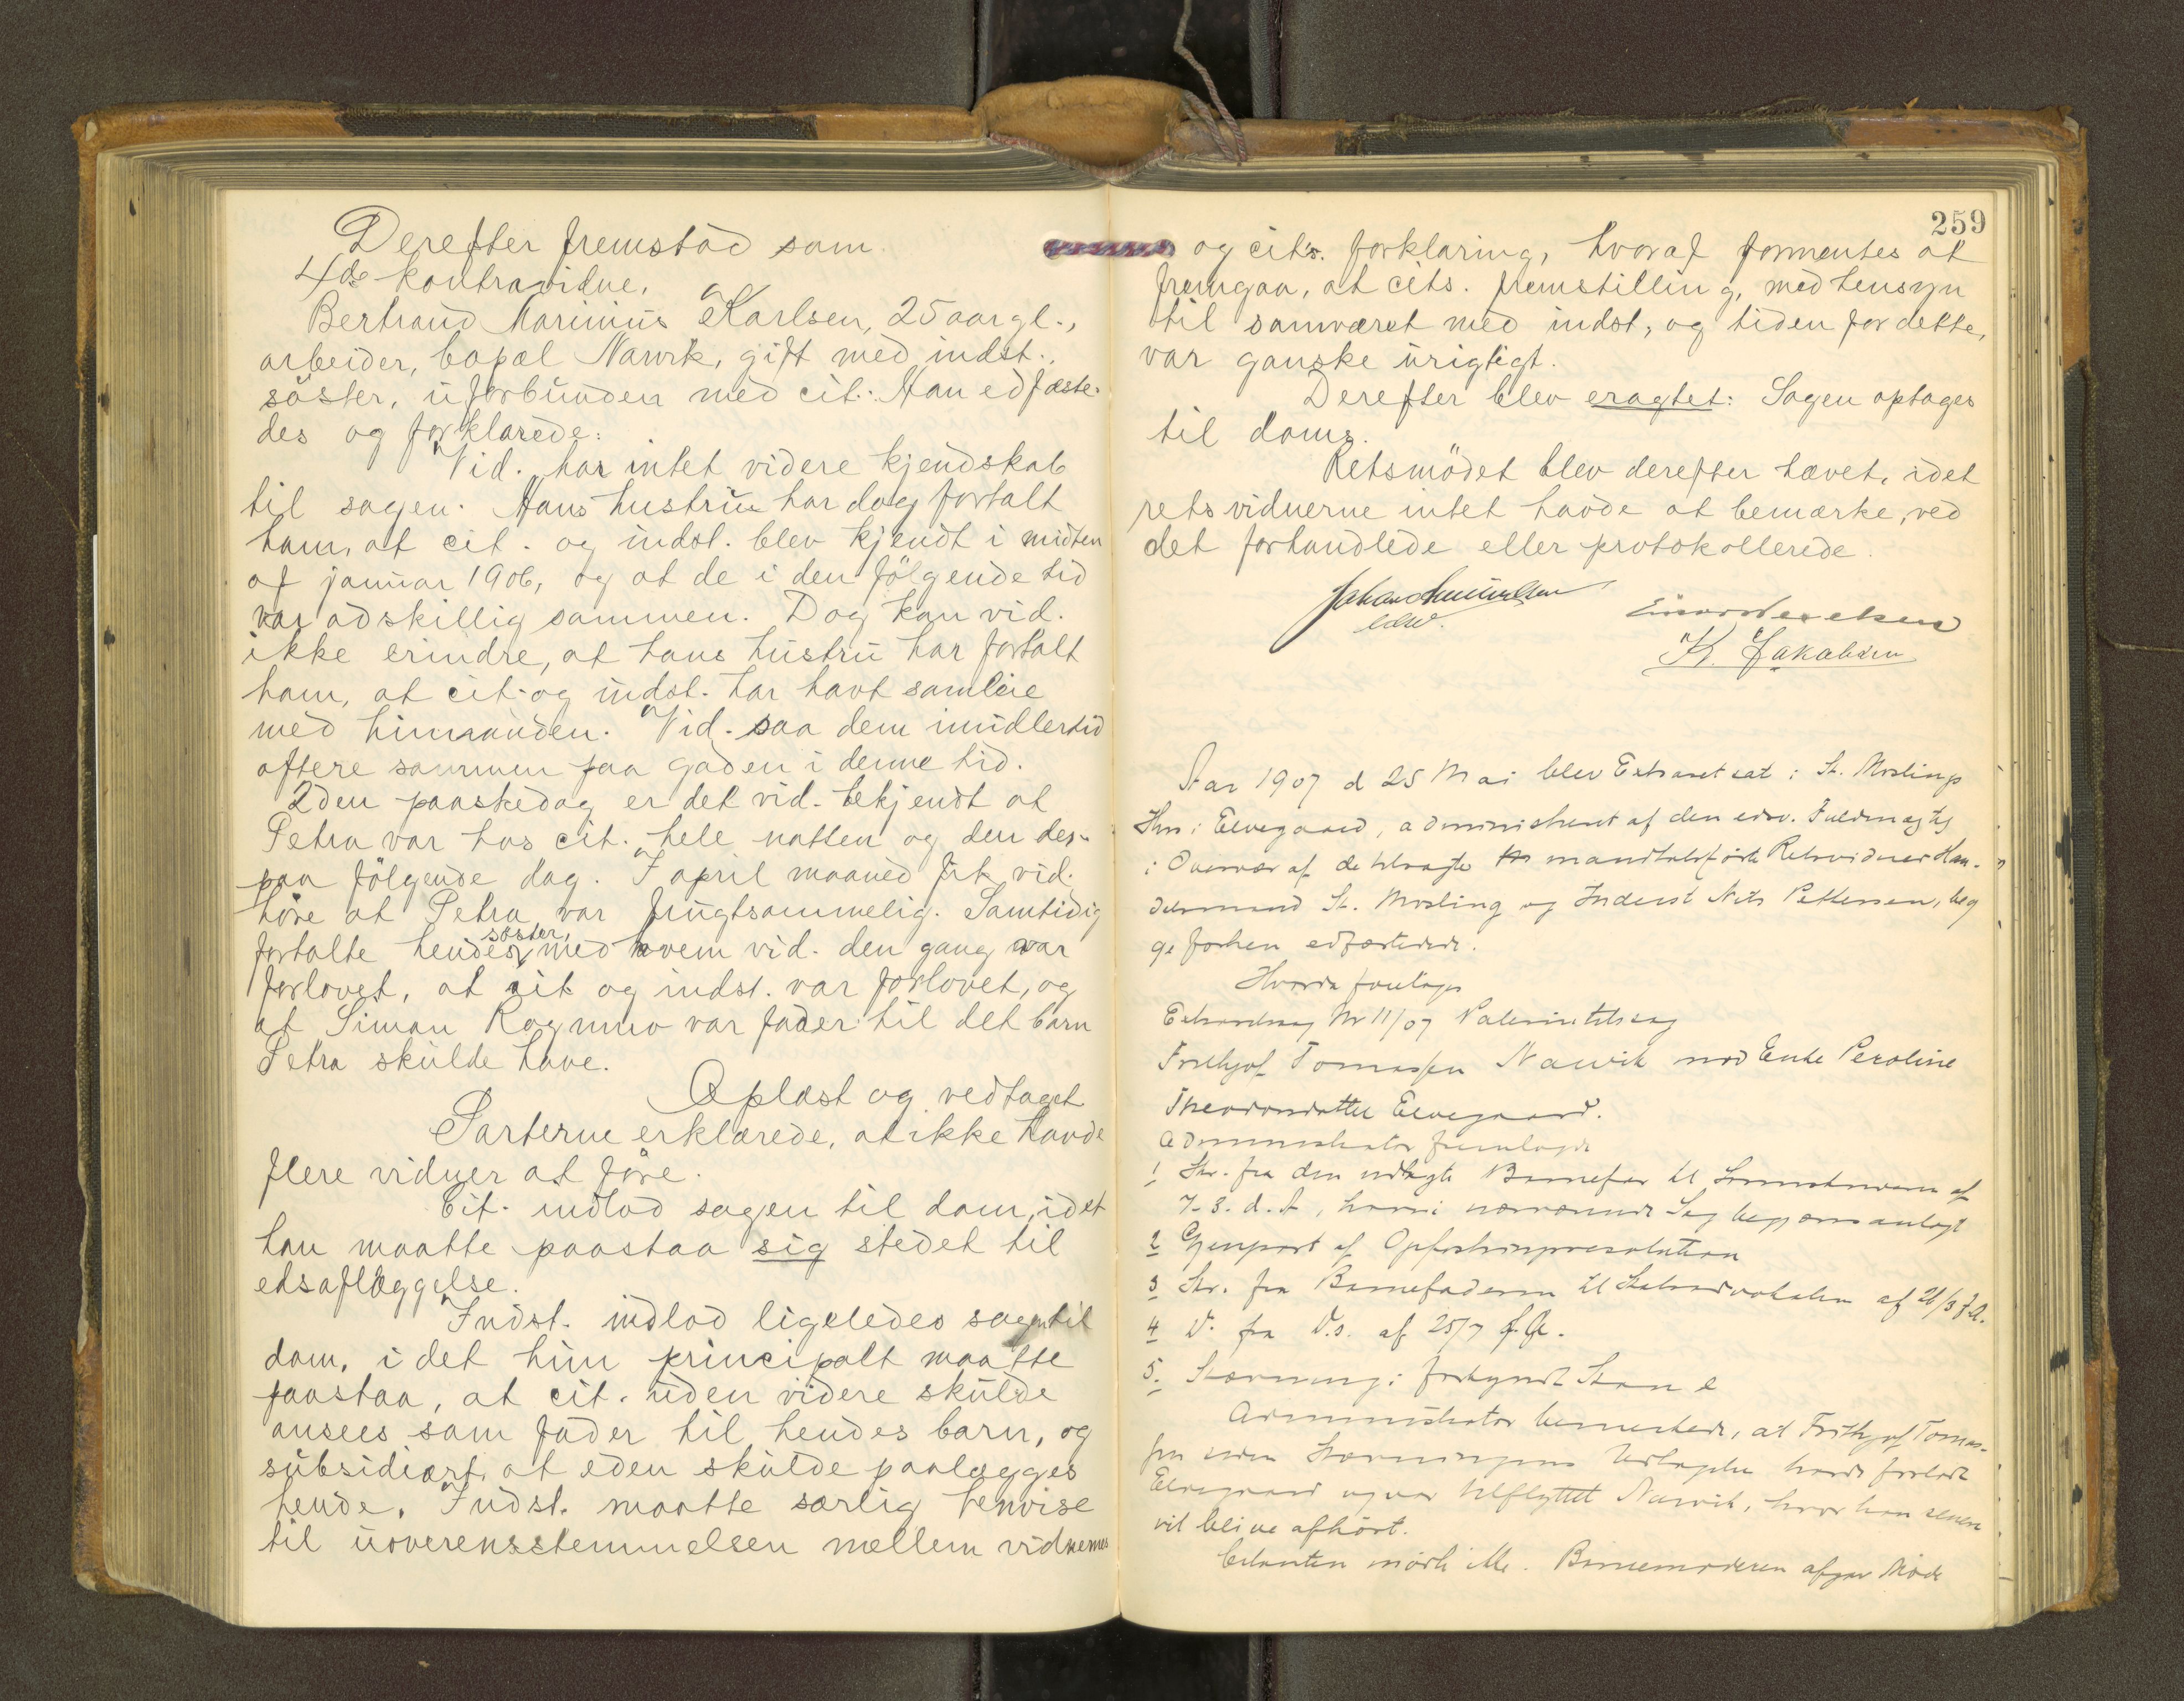 Derefter fremstod som
4de kontravidne,
Bertrand Marinius Karlsen, 25 aar gl.,
arbeider, bopæl Narvik, gift med indst.,
söster, uforbunden med cit. Han edfæste-
des og forklarede:
Vid. har intet videre kjendskab
til sagen. Hans hustru har dog fortalt
ham, at cit. og indst. blev kjendt i midten
af januar 1906, og at de i den fölgende tid
var adskillig sammen. Dog kan vid.
ikke erindre, at hans hustru har fortalt
ham, at cit. og indst. har havt samleie
med hinanden. Vid. saa dem imidlertid
oftere sammen paa gaden i denne tid.
2den paaskedag er det vid. bekjendt at
Petra var hos cit. hele natten og den des-
paa fölgende dag. I april maaned fik vid.
höre at Petra var frugtsommelig. Samtidig
fortalte hendes söster, med hvem vid. den gang var
forlovet, at cit og indst. var forlovet, og
at Simon Rognmo var fader til det barn
Petra skulde have.
Oplæst og vedtaget
Parterne erklærede, at ikke havde
flere vidner at före.
Cit. indlod sagen til dom, idet
han maatte paastaa sig stedet til
edsaflæggelse.
Indst. indlod ligeledes sagen til
dom, i det hun principalt maatte
paastaa, at cit. uden videre skulde
ansees som fader til hendes barn, og
subsidiært at eden skulde paalægges
hende. Indst. maatte særlig henvise
til uoverensstemmelsen mellem vidnernes
259
og cit's. forklaring, hvoraf formentes at
fremgaa, at cits. fremstilling, med hensyn
til samværet med indst, og tiden for dette,
var ganske urigtigt.
Derefter blev eragtet: Sagen optages
til doms.
Retsmödet blev derefter hævet, idet
retsvidnerne intet havde at bemærke, ved
det forhandlede eller protokollerede.
K. Jakobsen
Aar 1907 d 25 Mai blev Extraret sat i St. Moslings
Hus i Elvegaard, administreret af den edsv. Fuldmægtig
i Overvær af de tilsagte mandtalsförte Retsvidner Han-
delsmand St. Mosling og Inderst Nils Pettersen, beg
ge forhen edfæstede.
Hvorda foretoges
Extraretssag Nr 11/07 Paternitetssag
Frithjof Tomassen Narvik mod Enke Peroline
Theodorsdatter Elvegaard.
Administrator fremlagde
1 Skr. fra den udlagte Barnefar til af
7-3. d. A, hvori nærværende Sag begjæres anlagt
2 Gjenpart af Opfostringsresolution
3 Skr. fra Barnefaderen til af 21/3 f.A.
4 D. fra D.s. af 25/7 f.A.
5. Stævning i forkyndt Stan e
Administrator bemerkede, at Frithjof Tomas-
sen siden Stævningens Udtagelse havde forladt
Elvegaard og var tilflyttet Narvik, hvor han senere
vil blive afhört.
Citanten mödte ikke. Barnemoderen afgav Möde